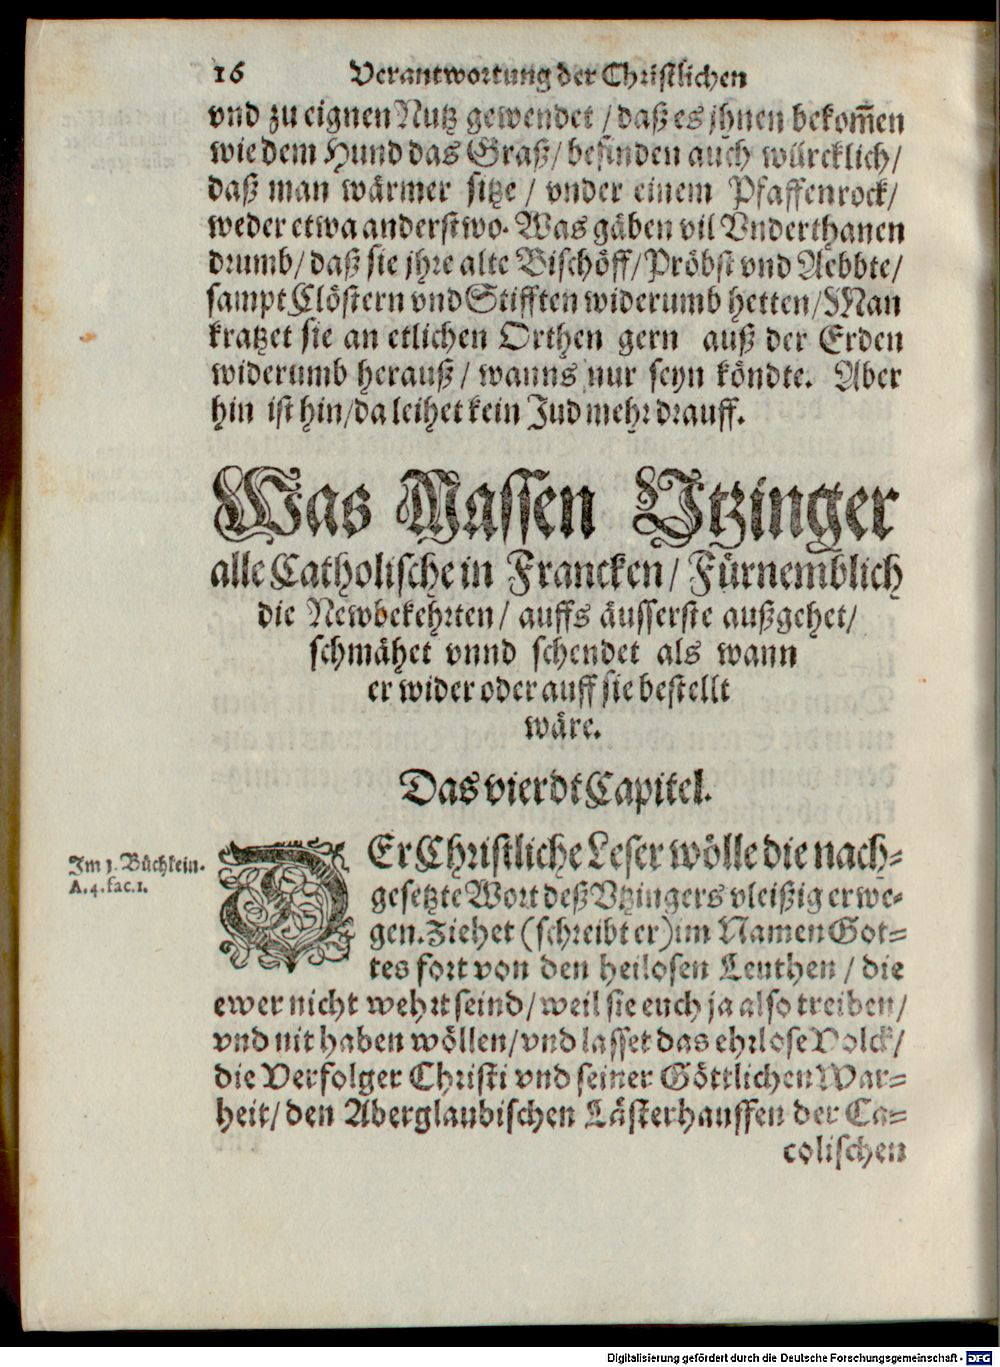 16 Verantwortung der Christlichen
vnd zu eignen Nutz gewendet / daß es jhnen bekom̃en
wie dem Hund das Graß / befinden auch würcklich /
daß man wärmer sitze / vnder einem Pfaffenrock /
weder etwa anderstwo. Was gäben vil Vnderthanen
drumb / daß sie jhre alte Bischöff / Pröbst vnd Aebbte /
sampt Clöstern vnd Stifften widerumb hetten / Man
kratzet sie an etlichen Orthen gern auß der Erden
widerumb herauß / wanns nur seyn köndte. Aber
hin ist hin / da leihet kein Jud mehr drauff.
Was Massen Vtzinger
alle Catholische in Francken / Fürnemblich
die Newbekehrten / auffs äusserste außgehet /
schmähet vnnd schendet als wann
er wider oder auff sie bestellt
wäre.
Das vierdt Capitel.
Im 1. Büchlein.
A. 4. fac. 1.
DEr Christliche Leser wölle die nach-
gesetzte Wort deß Vtzingers vleißig erwe-
gen. Ziehet (schreibt er) im Namen Got-
tes fort von den heilosen Leuthen / die
ewer nicht wehrt seind / weil sie euch ja also treiben /
vnd nit haben wöllen / vnd lasset das ehrlose Volck /
die Verfolger Christi vnd seiner Göttlichen War-
heit / den Aberglaubischen Lästerhauffen der Ca-
colischen
Digitalisierung gefördert durch die Deutsche Forschungsgemeinschaft - DFG